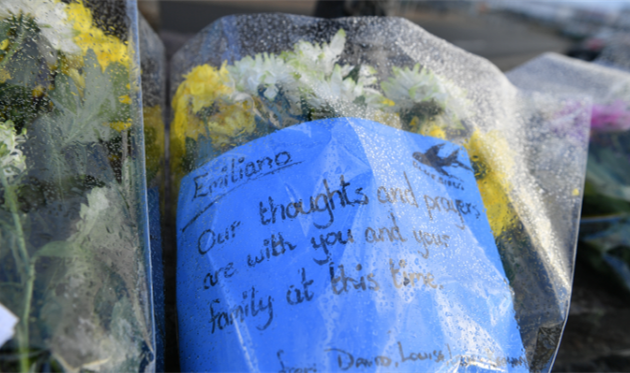 Emiliano
Our thoughts and prayers
are with you and your
family at this time.
from David, Louise